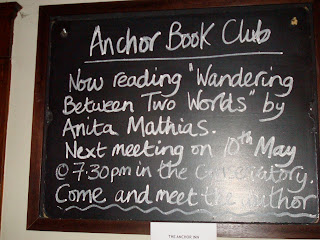 Anchor Book Club
Now reading "Wandering
Between Two Worlds" by
Anita Mathias.
Next meeting on 10th May
@ 7.30pm in the Conservatory.
Come and meet the author
THE ANCHOR INN